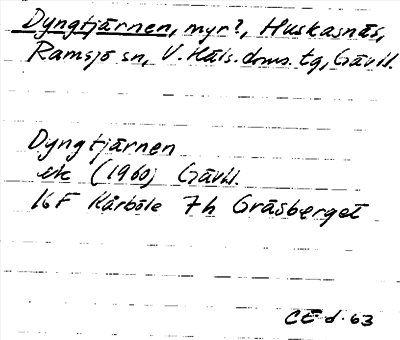 Dyngtjärnen, myr?, Huskasnäs,
Ramsjö sn, V. Häls. doms. tg, Gävl.
Dyngtjärnen
ek (1960) Gävbl.
16F Kårböle 7h Gräsberget
CE d. 63